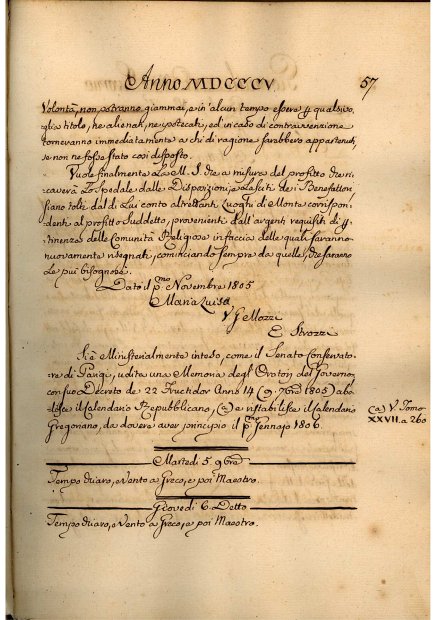 Anno MDCCCV.
57
Volontà, non potranno giammai, e in alcun tempo essere p qualsivo,
glia titolo, ne alienati, ne ipotecati, ed in caso di contravvenzione
torneranno immediatamente a chi di ragione sarebbero appartenuti,
se non ne fosse stato così disposto.
Vuole finalmente La M. S. che a misura del profitto che ri
caverà Lo Spedale dalle Disposizioni, e Lasciti dei Benefattori
siano tolti dal di Lui conto altrettanti Luoghi di Monte corrispon
denti al profitto Suddetto, provenienti dall'argenti requisiti di p
tinenza delle Comunità Religiose in faccia delle quali saranno
nuovamente risegnati, cominciando sempre da quelle, che saranno
Le più bisognose.
Dato il pmo Novembre 1805
Maria Luisa
V. G Mozzi
E Strozzi
Si è Ministerialmente inteso, come il Senato Conservato
re di Parigi, udita una Memoria degl' Oratori del Governo,
con suo Decreto de 22 Fructidor Anno 14 (9. 7bre 1805) abo
lisce il Calendario Repubblicano, (a) e ristabilisce il Calendario
Gregoriano, da dovere aver principio il p Gennajo 1806.
(a) V. Tomo
XXVII. a 260
Martedì 5. 9bre
Tempo chiaro, e Vento a Greco, e poi Maestro.
Giovedì 6. Detto
Tempo chiaro, e Vento a Greco, e poi Maestro.